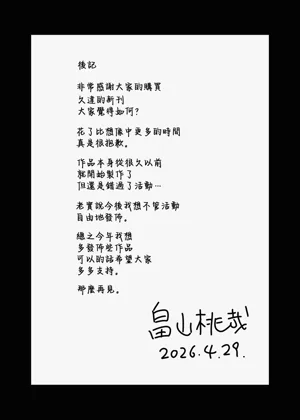 後記
非常感謝大家的購買
久違的新刊
大家覺得如何?
花了比想像中更多的時間
真是很抱歉。
作品本身從很久以前
就開始製作了
但還是錯過了活動…
老實說今後我想不管活動
自由地發佈。
總之今年我想
多發佈些作品
可以的話希望大家
多多支持。
那麼再見。
畠山桃哉
2026.4.29.